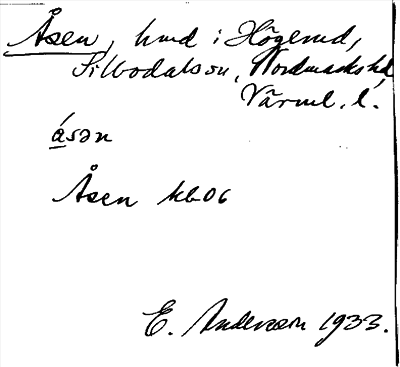 Åsen, hmd i Högerud,
Silbodals sn, Nordmarks hd,
Värml. l.
ásən
Åsen kb06
E. Anderson 1933.